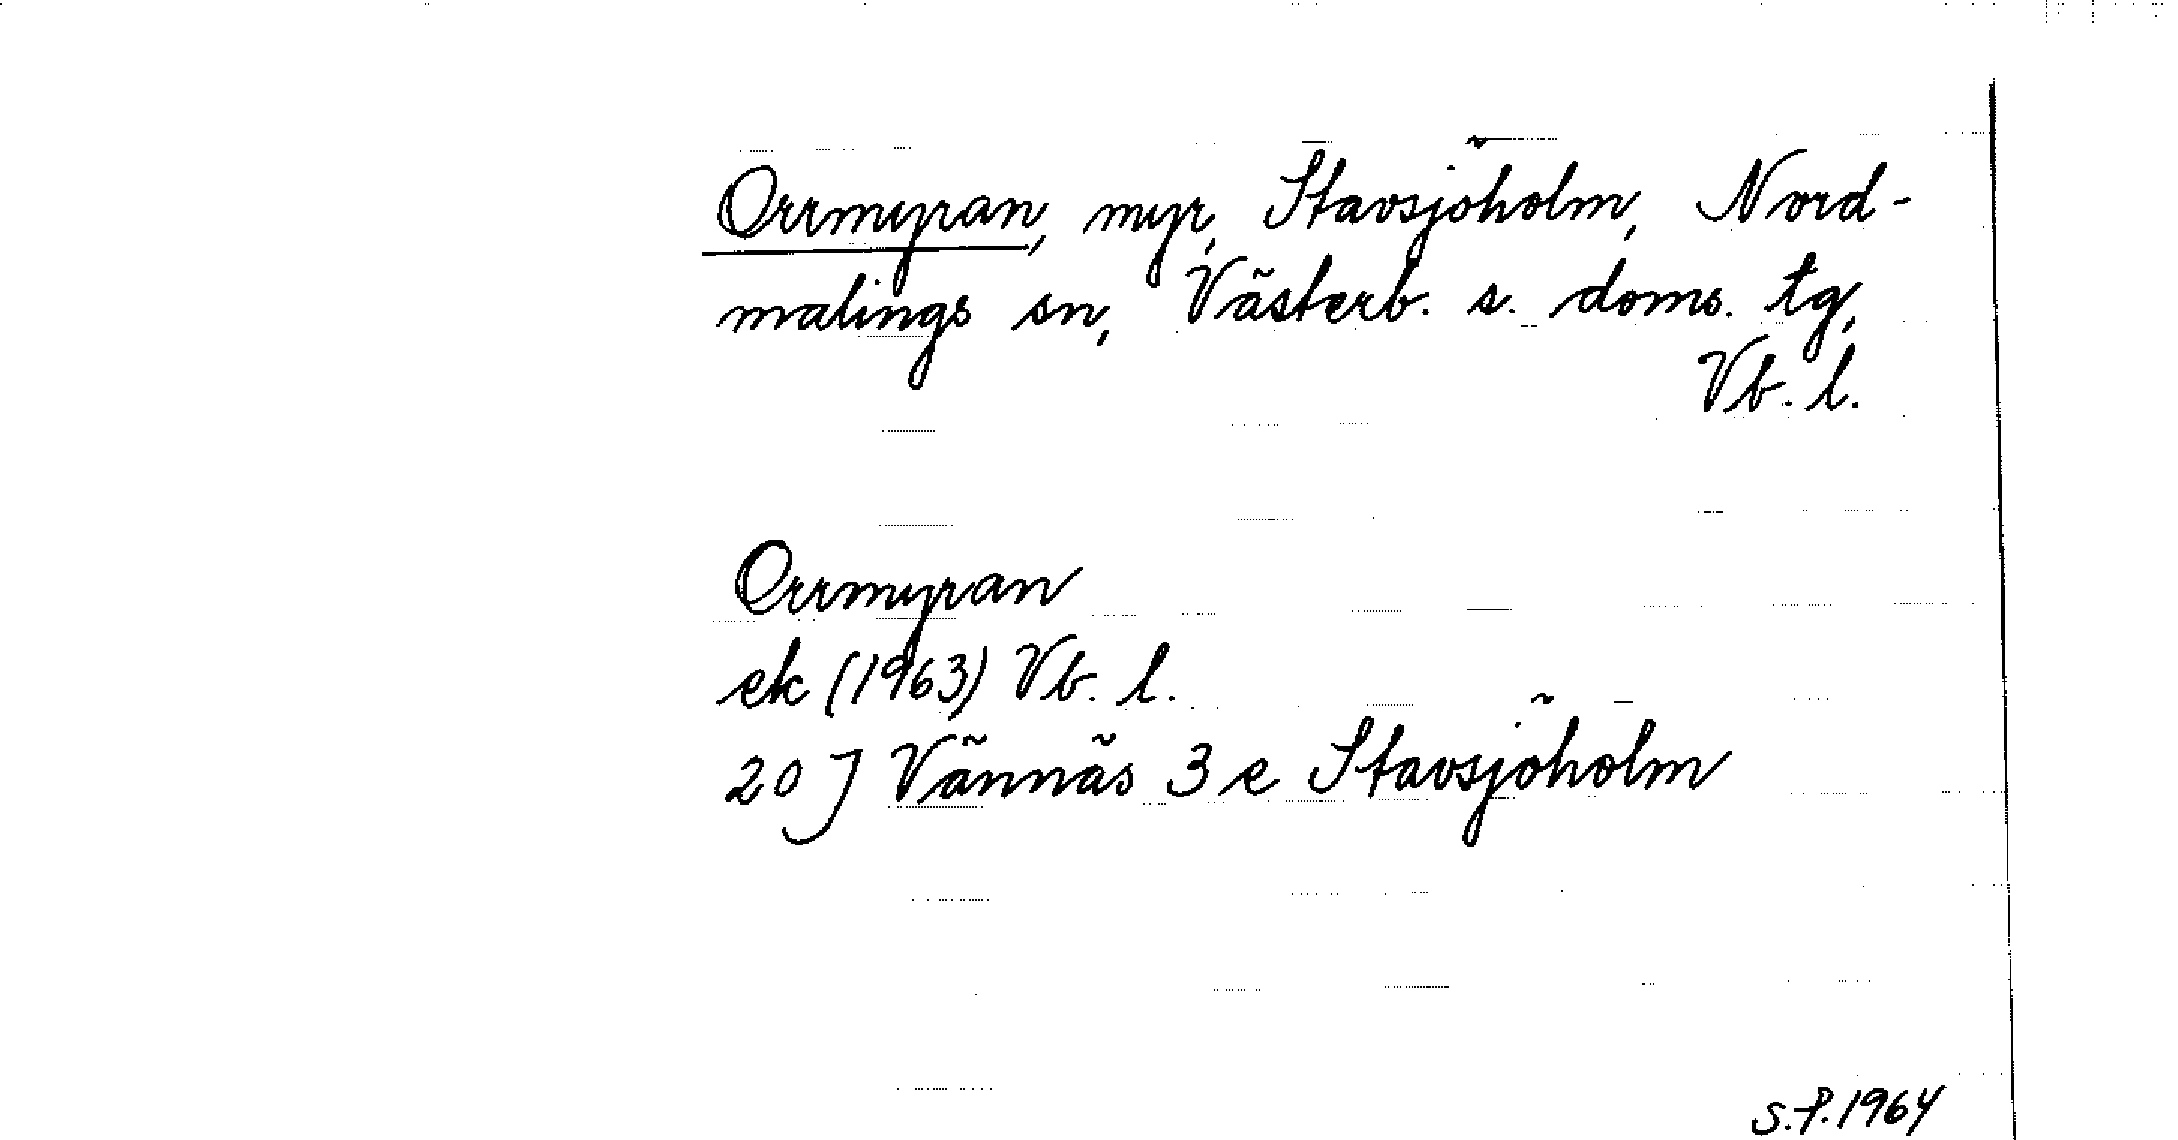 Orrmyran, myr, Stavsjöholm, Nord-
malings sn, Västerb. s. doms. tg,
Vb. l.
Orrmyran
ek (1963) Vb. l.
20 J Vännäs 3 e Stavsjöholm
S.P. 1964